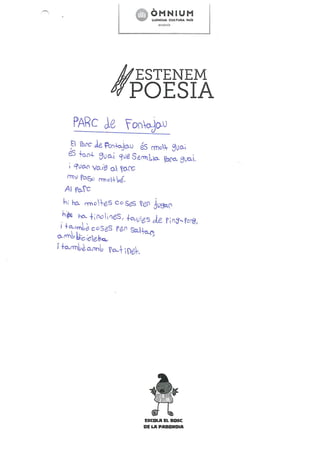 ÒMNIUM
LLENGUA CULTURA PAÍS
ESTENEM
POESIA
PARC de Fontajau
El Parc de Fontajau és molt guai
és tant guai que Sembla Para guai.
i quan vaig al Parc
mu Paso molt bé.
Al Parc
hi ha moltes coses per jugar
ha tirolines, taules de Ping-Pong,
i també coses Per Saltar
amb bicicleta
i també amb Patinet.
ESCOLA EL BOSC
DE LA PABORDIA